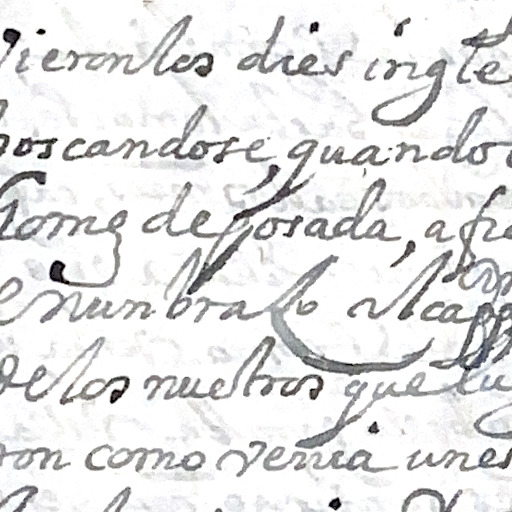 Vieronlos dies ingle
boscandose, quando
de Posada, a
enun braso al cap
delos nuestros que lu
ron como venia unes